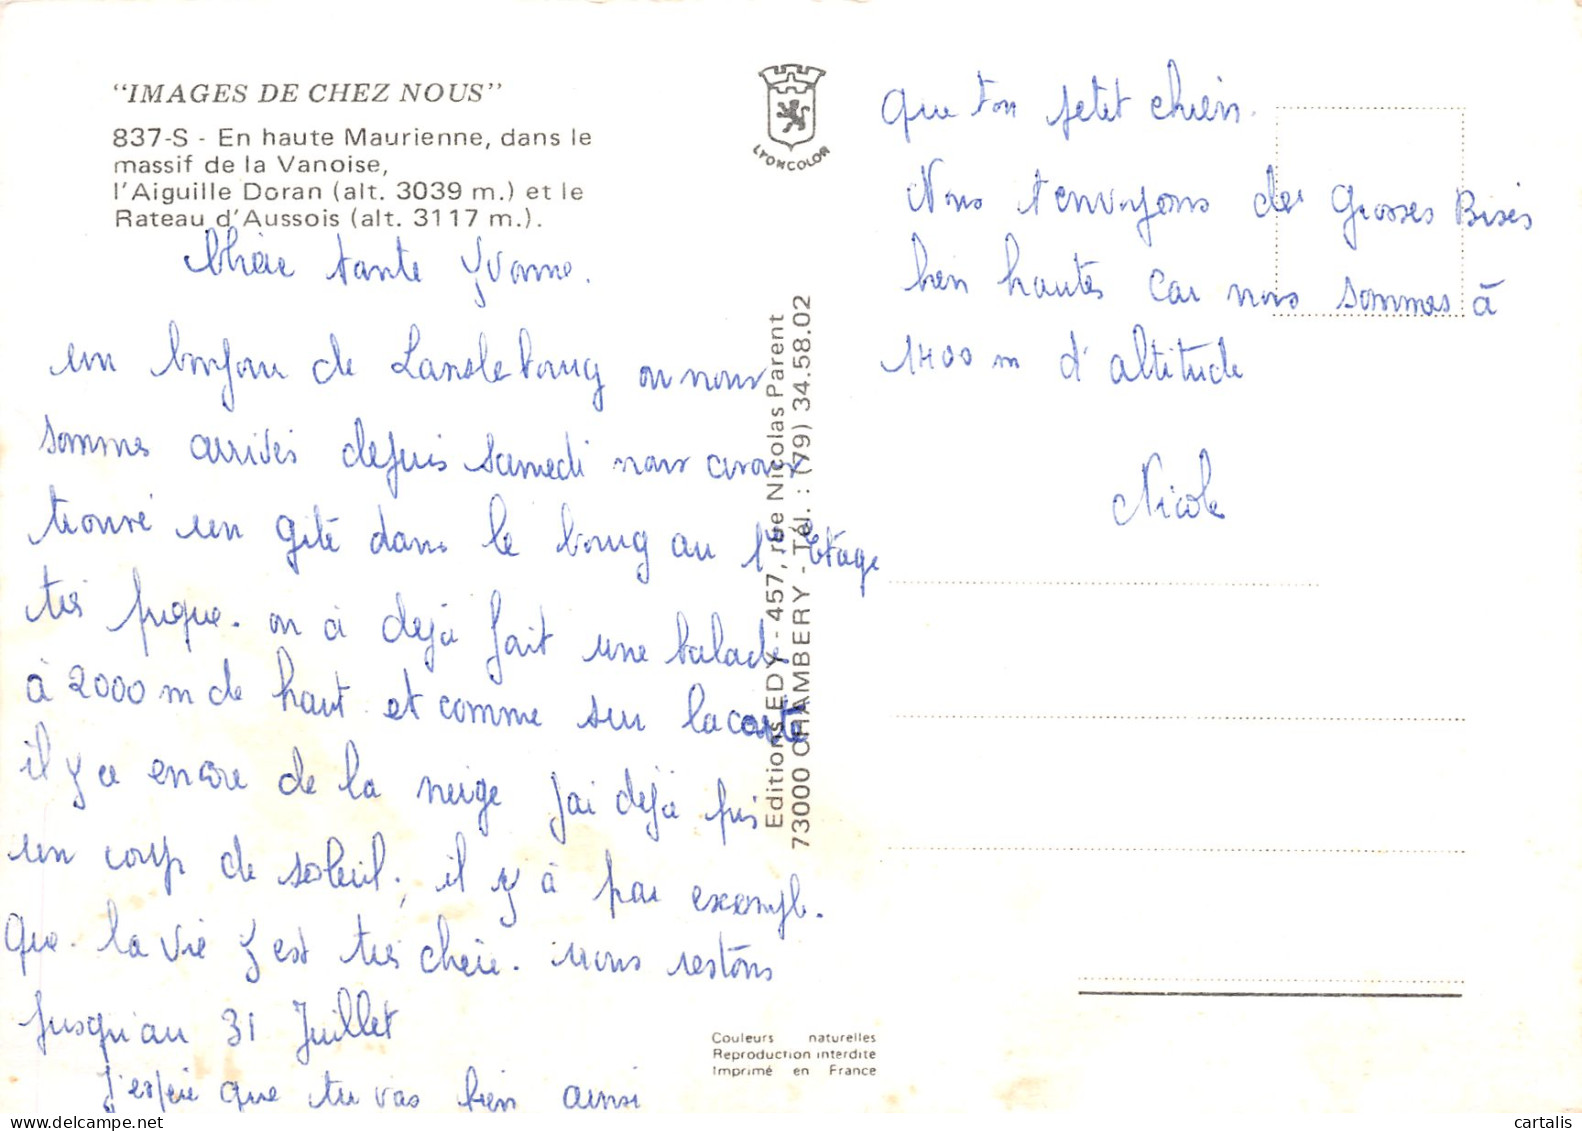 "IMAGES DE CHEZ NOUS"
837-S - En haute Maurienne, dans le
massif de la Vanoise,
l'Aiguille Doran (alt. 3039 m.) et le
Rateau d'Aussois (alt. 3117 m.).
Chère tante Yvonne.
un bonjour de Lanslebourg ou nous
sommes arrivés depuis Samedi nous avons
trouvé un gite dans le bourg au 1er Etage
très
on à dejà fait une balade
à 2000 m de haut et comme sur la carte
il y a encore de la neige j'ai dejà pris
un coup de soleil. il y à par exemple.
que la vie y est très chère. nous restons
jusqu'au 31 Juillet
J'espère que tu vas bien ainsi
que ton petit chien.
Nous t'envoyons des Grosses Bises
bien hautes car nous sommes à
1400 m d'altitude
Nicole
LYONCOLOR
Editions EDY - 457, rue Nicolas Parent
73000 CHAMBERY - Tél. : (79) 34.58.02
Couleurs naturelles
Reproduction interdite
Imprimé en France
cartalis